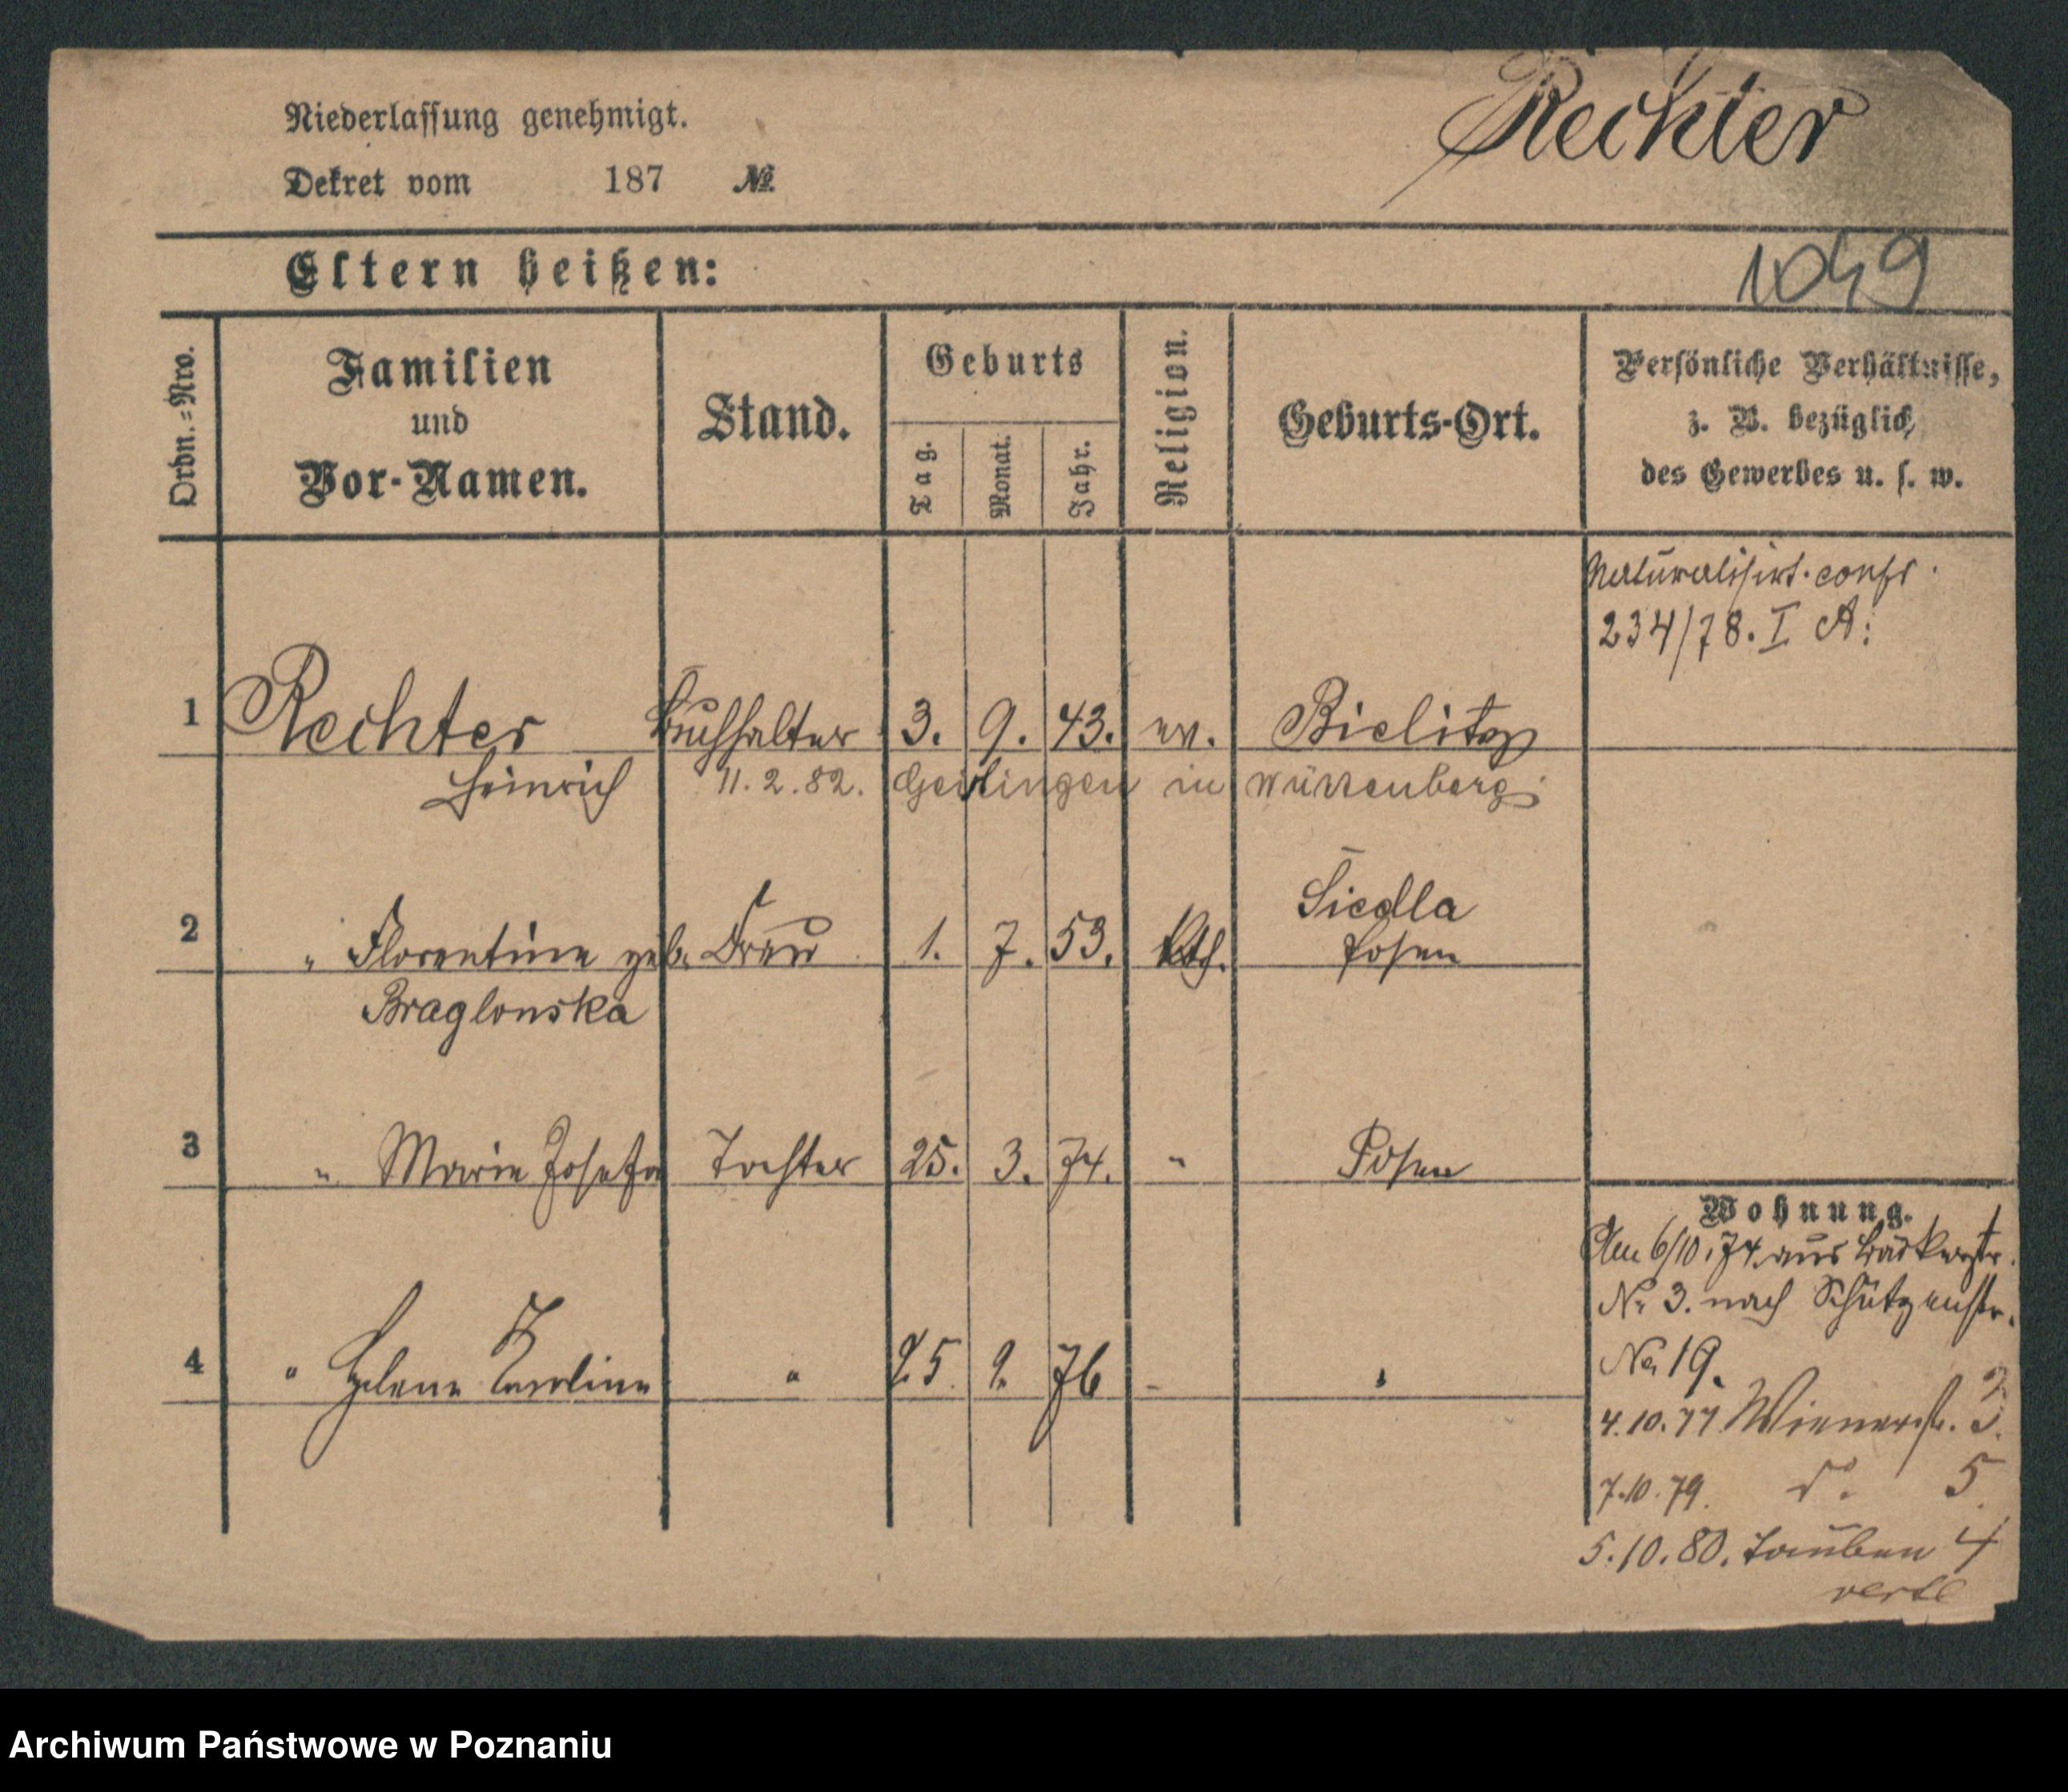 Niederlassung genehmigt.
Rechter
Dekret vom 187 №
Eltern heißen:
1049
Ordn.=Nro.
Familien
und
Vor-Namen.
Stand.
Geburts
Tag.
Monat.
Jahr.
Religion.
Geburts-Ort.
Persönliche Verhältnisse,
z. B. bezüglich
des Gewerbes u. s. w.
Naturalisirt.
234/78. I A:
1 Rechter Buchhalter 3. 9. 43. ev. Bielitz
Heinrich 11. 2. 82. Geislingen in
Siedla
2 " Florentine geb. Frau 1. 7. 53. Kth. Posen
Braglonska
3 " Marie Josefa Tochter 25. 3. 74. " Posen
Wohnung.
6/10.74. aus Bäckerstr.
Nr 3. nach Schützenstr.
No 19.
4 " Helene Karoline " 25 9. 76 - "
4.10.77 Wienerstr. 3.
7.10.79. do. 5.
5.10.80. Tauben 4
verte
Archiwum Państwowe w Poznaniu